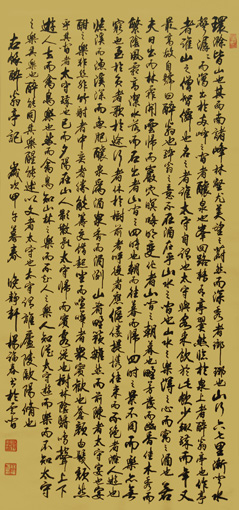 環滁皆山也其西南諸峰林壑尤美望之蔚然而深秀者瑯琊也山行六七里漸聞水
聲潺潺而瀉出於兩峰之間者釀泉也峰回路轉有亭翼然臨於泉上者醉翁亭也作亭
者誰山之僧智僊也名之者誰太守自謂也太守與客來飲於此飲少輒醉而年又
最高故自號曰醉翁也醉翁之意不在酒在乎山水之間也山水之樂得之心而寓之酒也若
夫日出而林霏開雲歸而巖穴暝晦明變化者山間之朝暮也野芳發而幽香佳木秀而
繁陰風霜高潔水落而石出者山間之四時也朝而往暮而歸四時之景不同而樂亦無
窮也至於負者歌於途行者休於樹前者呼後者應傴僂提攜往來而不絕者滁人遊也
臨溪而漁溪深而魚肥釀泉為酒泉香而酒洌山肴野蔌雜然而前陳者太守宴也宴
酣之樂非絲非竹射者中弈者勝觥籌交錯起坐而喧嘩者眾賓歡也蒼顏白髮頹然
乎其間者太守醉也已而夕陽在山人影散亂太守歸而賓客從也樹林陰翳鳴聲上下
遊人去而禽鳥樂也然而禽鳥知山林之樂而不知人之樂人知從太守遊而樂而不知太守
之樂其樂也醉能同其樂醒能述以文者太守也太守謂誰廬陵歐陽脩也
右錄醉翁亭記 歲次甲午暮春 靜軒 楊 春書於雲